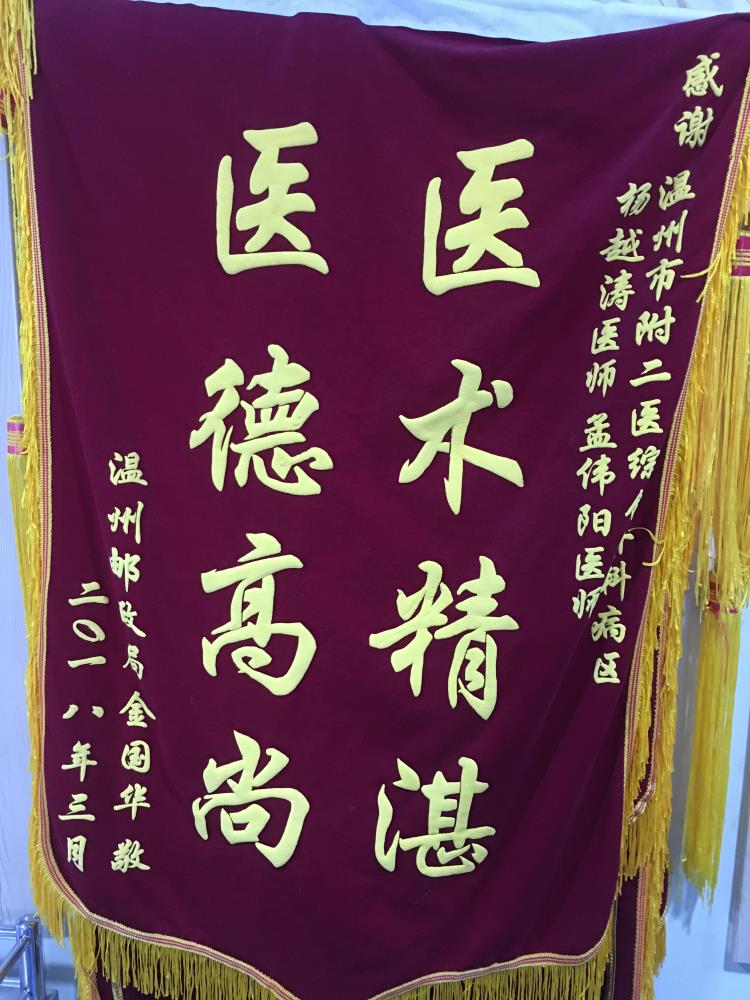 感谢
温州市附二医综合外科病区
杨越涛医师 孟伟阳医师
医术精湛
医德高尚
温州邮政局金国华敬
二〇一八年三月